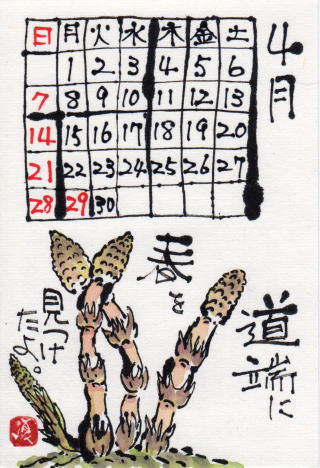 4月
日 月 火 水 木 金 土
1 2 3 4 5 6
7 8 9 10 11 12 13
14 15 16 17 18 19 20
21 22 23 24 25 26 27
28 29 30
道端に
春を
見つけ
たよ。